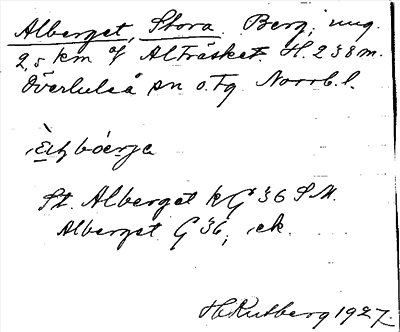 Alberget, Stora. Berg, ung.
2,5 km af Alträsket. H. 238 m.
Överluleå sn o. tg Norrb. l.
St. Alberget kG 36 S M.
Alberget G 36, ek.
H Rutberg 1927.